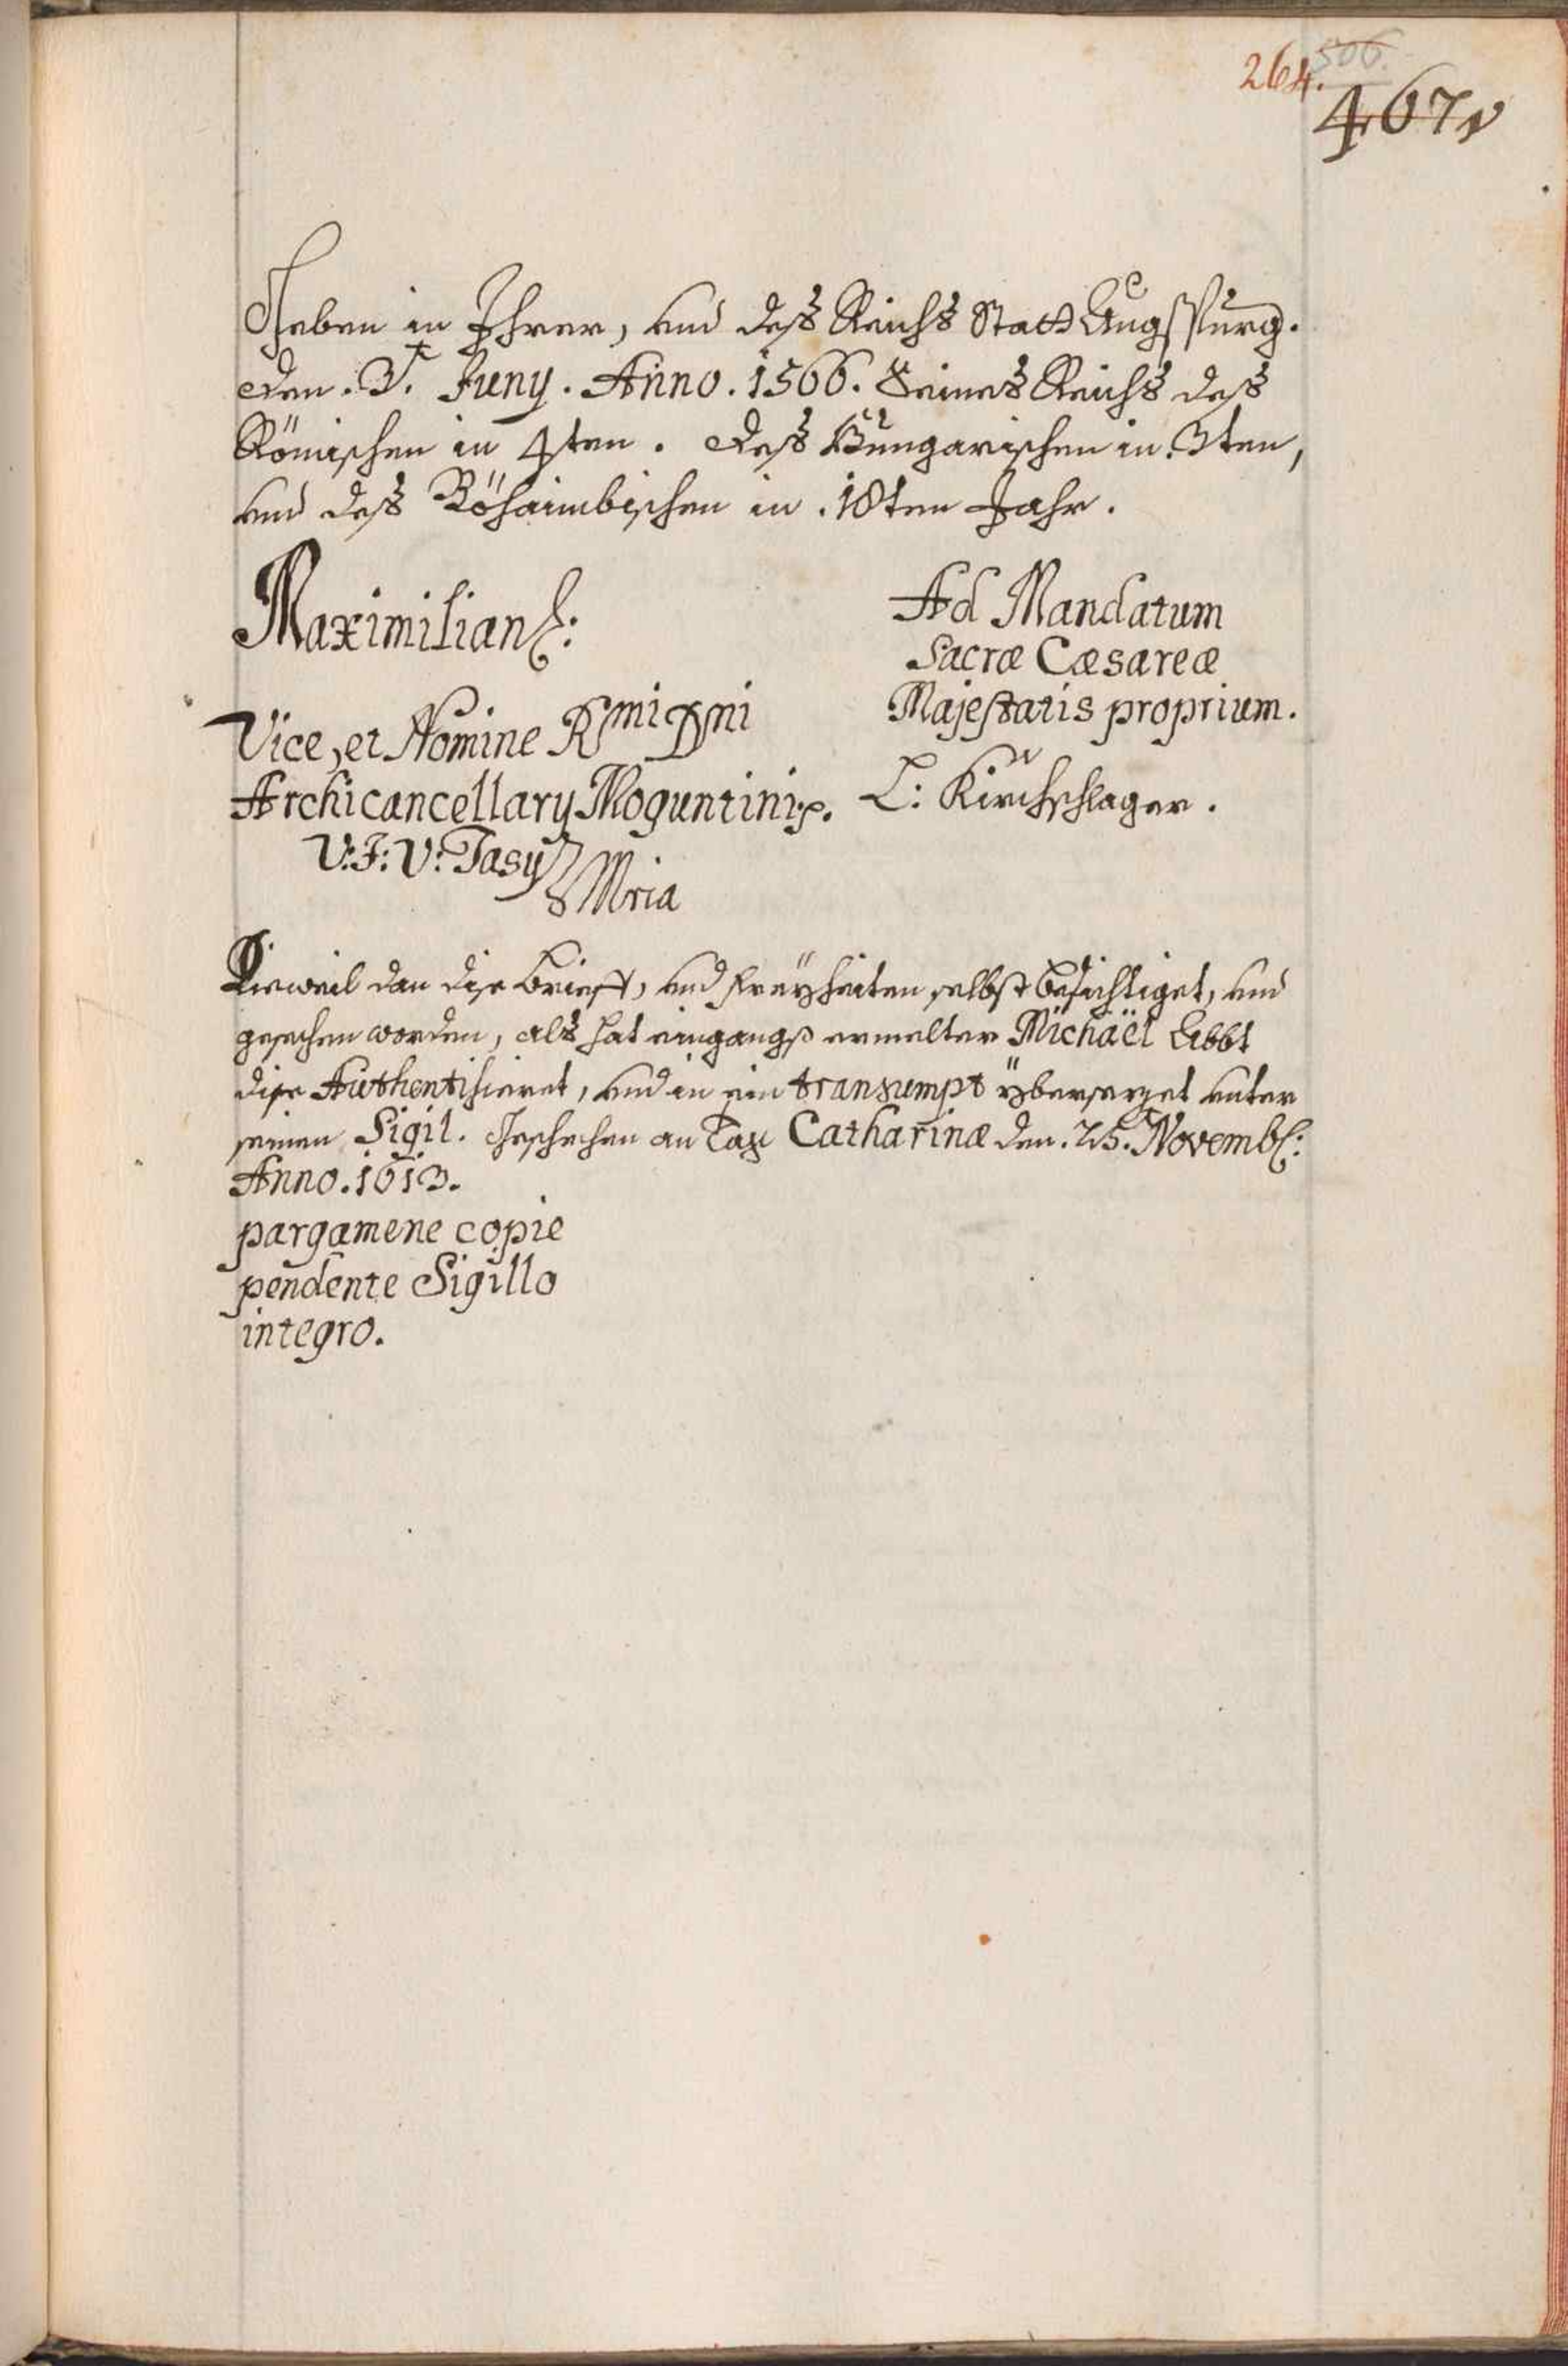 264. 506.
467
Geben in Ihrer, und deß Reichs Statt Augspurg.
den. 3.t Juny. Anno. 1566. Seines Reichs deß
Römischen in 4ten. deß Hungarischen in. 3ten,
und deß Böhaimbischen in. 18ten Jahr.
Maximilian:
Vice, et Nomine Rmi Dni
Archicancellary Moguntini.
V: J: V: Tasy
Mria
Ad Mandatum
Sacræ Cæsareæ
Majestatis proprium.
L: Kirchschlager.
Dieweil dan dise brieff, und freÿheiten selbst besichtiget, und
gesechen worden, als hat eingangß ermelter Michaël Abbt
dise Authentisieret, und in ein transumpt ÿbersezet unter
seinen Sigil. Geschechen an Tag Catharinæ den. 25. Novemb:
Anno. 1613.
pargamene copie
pendente Sigillo
integro.